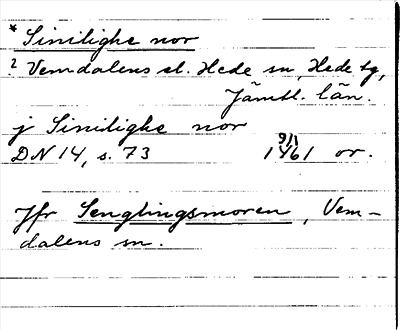 * Sinilighe nor
? Vemdalens el. Hede sn, Hede tg,
Jämtl. län.
j Sinilighe nor
DN 14, s. 73 9/1 1461 or.
Jfr Senglingsmoren, Vem-
dalens sn.